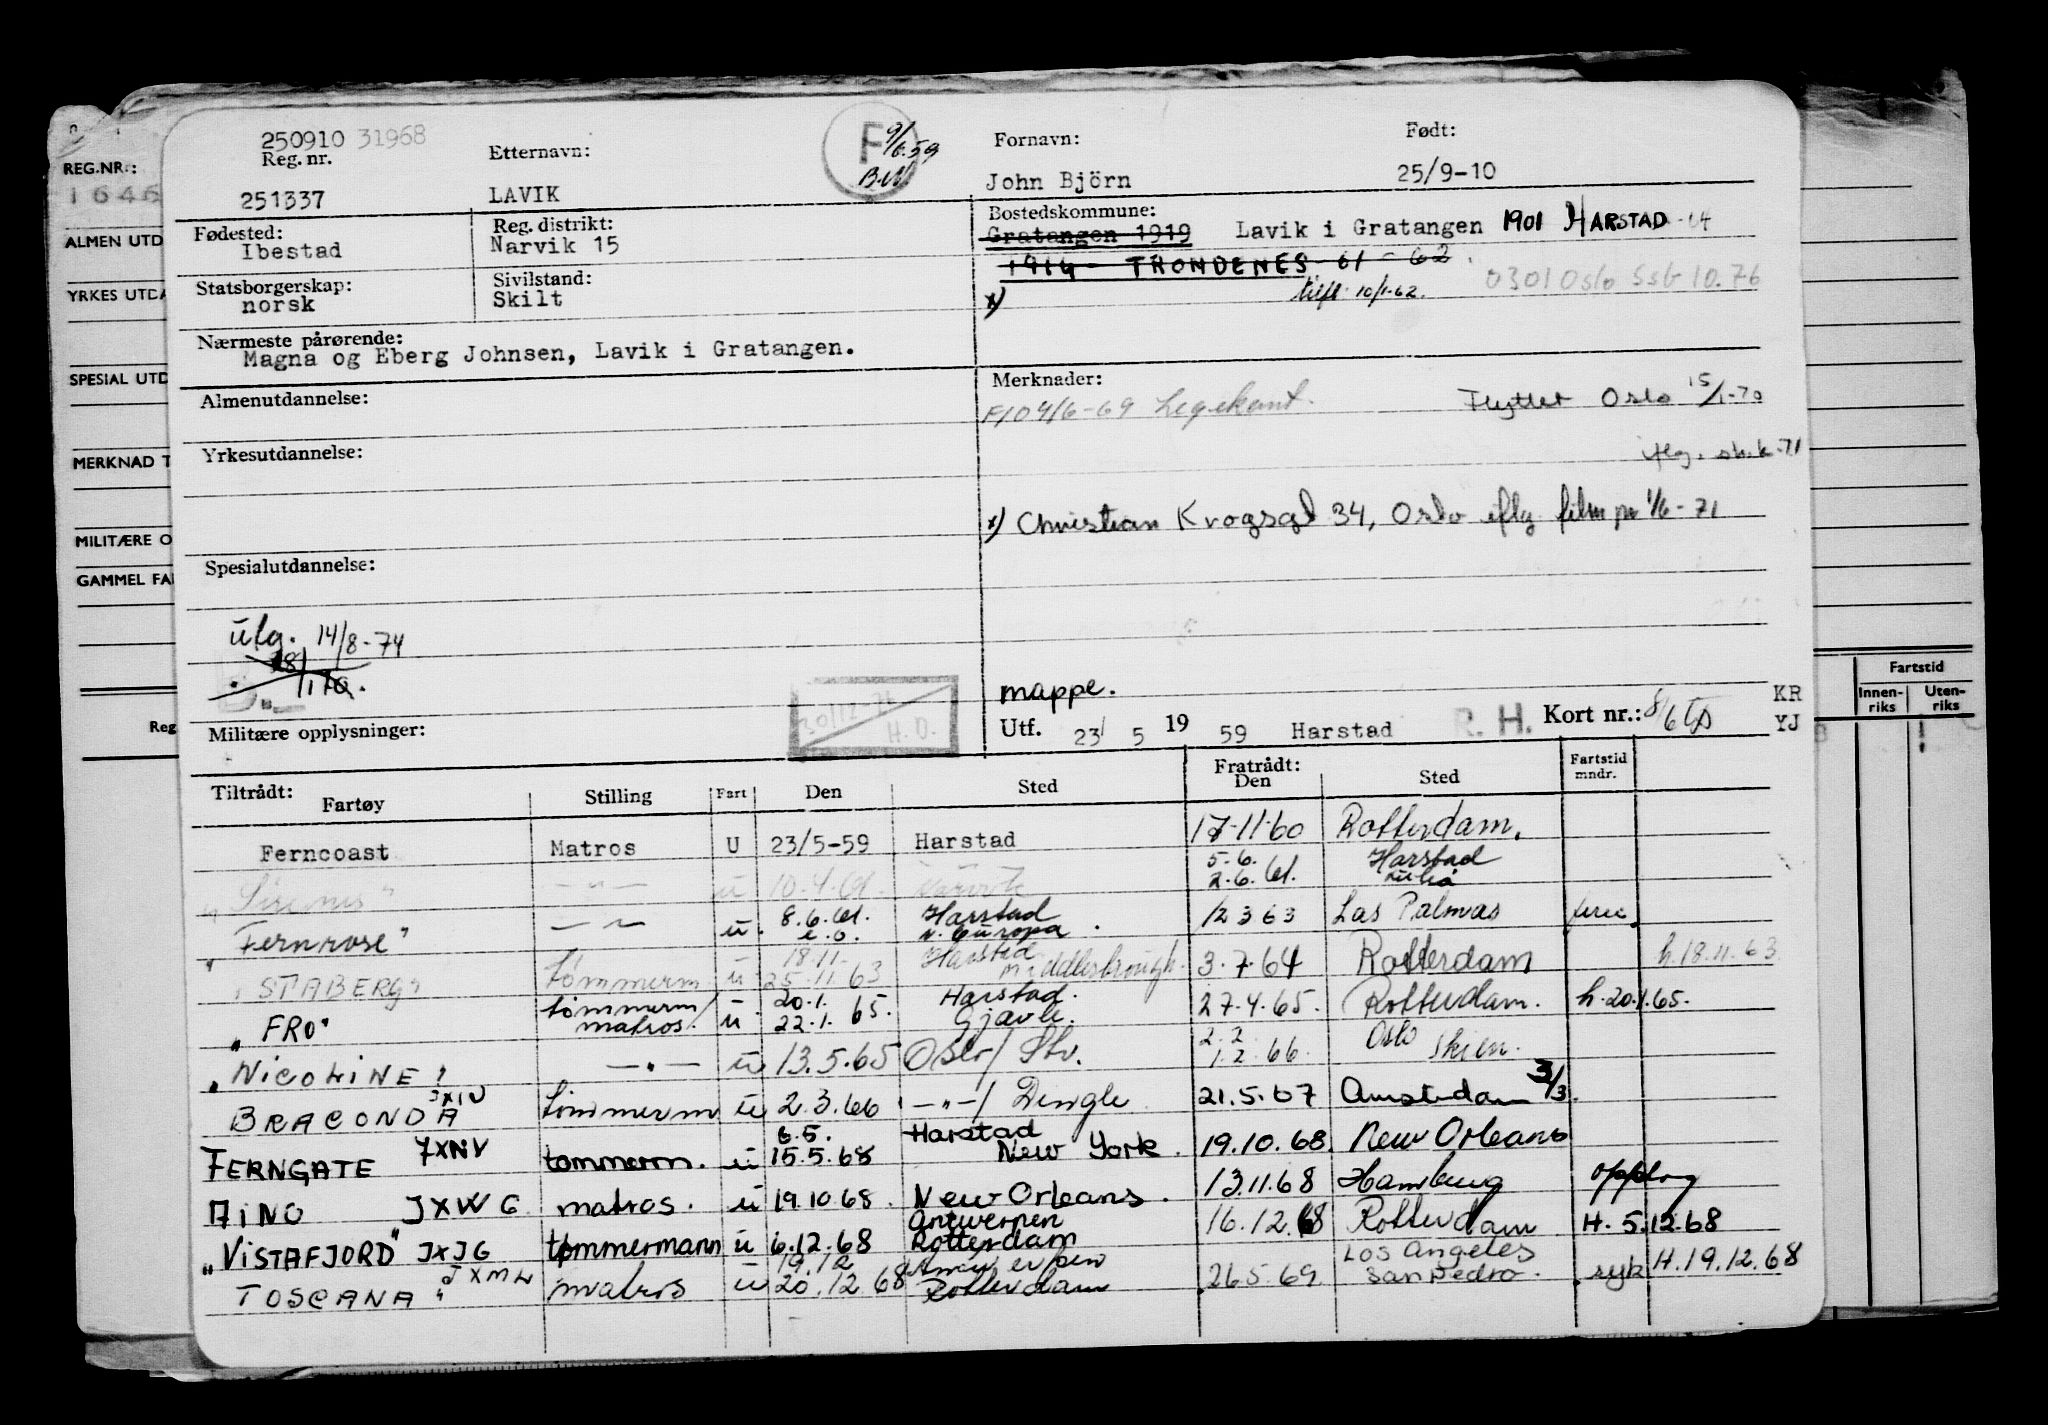 250910 31968
Reg. nr.
251337
Etternavn:
LAVIK
F 9/6.59
B.M
Fornavn:
John Björn
Født:
25/9-10
REG.NR.:
1646
ALMEN UTD
YRKES UTDA
SPESIAL UTD
MERKNAD T
MILITÆRE O
GAMMEL FA
Reg
Fødested:
Ibestad
Reg. distrikt:
Narvik 15
Bostedskommune:
Gratangen 1919 Lavik i Gratangen 1901 HARSTAD -64
1914 - TRONDENES - 61 - 62
x) tilfl. 10/1.62. 0301 Oslo Ssb 10.76
Statsborgerskap:
norsk
Sivilstand:
Skilt
Nærmeste pårørende:
Magna og Eberg Johnsen, Lavik i Gratangen.
Almenutdannelse:
Merknader:
4/6-69 Legekont. Flyttet Oslo 15/1-70
Yrkesutdannelse:
iflg. sk.k -71
x) Christian Krogsgt 34, Oslo iflg film pr 1/6-71
Spesialutdannelse:
ulg. 14/8-74
mappe.
Militære opplysninger:
H.O.
Utf. 23/ 5 19 59 Harstad R. H. Kort nr.: 8/6
KR
YJ
Fartstid
Innen-
riks
Uten-
riks
Tiltrådt:
Fartøy Stilling Fart Den Sted Fratrådt:
Den Sted Fartstid
mndr.
Ferncoast Matros U 23/5-59 Harstad 17-11-60 Rotterdam.
" Sirenes" —"— u 10.4.61. Narvik 5.6. 2.6.61. Harstad
" Fernrose" —"— u. 8.6.61. Harstad N. Europa. 12 3 63 Las Palmas ferie
" STABERG" tømmerm u 18.11. 25.11.63 Harstad Middlesbrough. 3.7.64 Rotterdam h.18.11.63
" FRO" tømmerm/ matros. u u 20.1. 22.1. 65. Harstad. Gjävle. 27.4.65. Rotterdam. h.20.1.65.
" NICOLINE" —"— u 13.5.65 Oslo/ Stv. 2.2 1.2.66. Oslo Skien.
BRACONDA JXIU tømmerm u 2.3.66 —"—/ Dingle 21.5.67 Amsterdam 3/3.
FERNGATE JXNV tømmerm. u 6.5. 15.5.68 Harstad New York. 19.10.68. New Orleans
AINO JXWG matros. u 19.10.68. New Orleans. 13.11.68 Hamburg oppdrag
"VISTAFJORD" JXJG tømmermann u 6.12.68 Antwerpen Rotterdam 16.12.68 Rotterdam H. 5.12.68
TOSCANA" JXMW matros u 19.12 20.12.68 Antwerpen Rotterdam 26.5.69. Los Angeles San Pedro. syk H.19.12.68